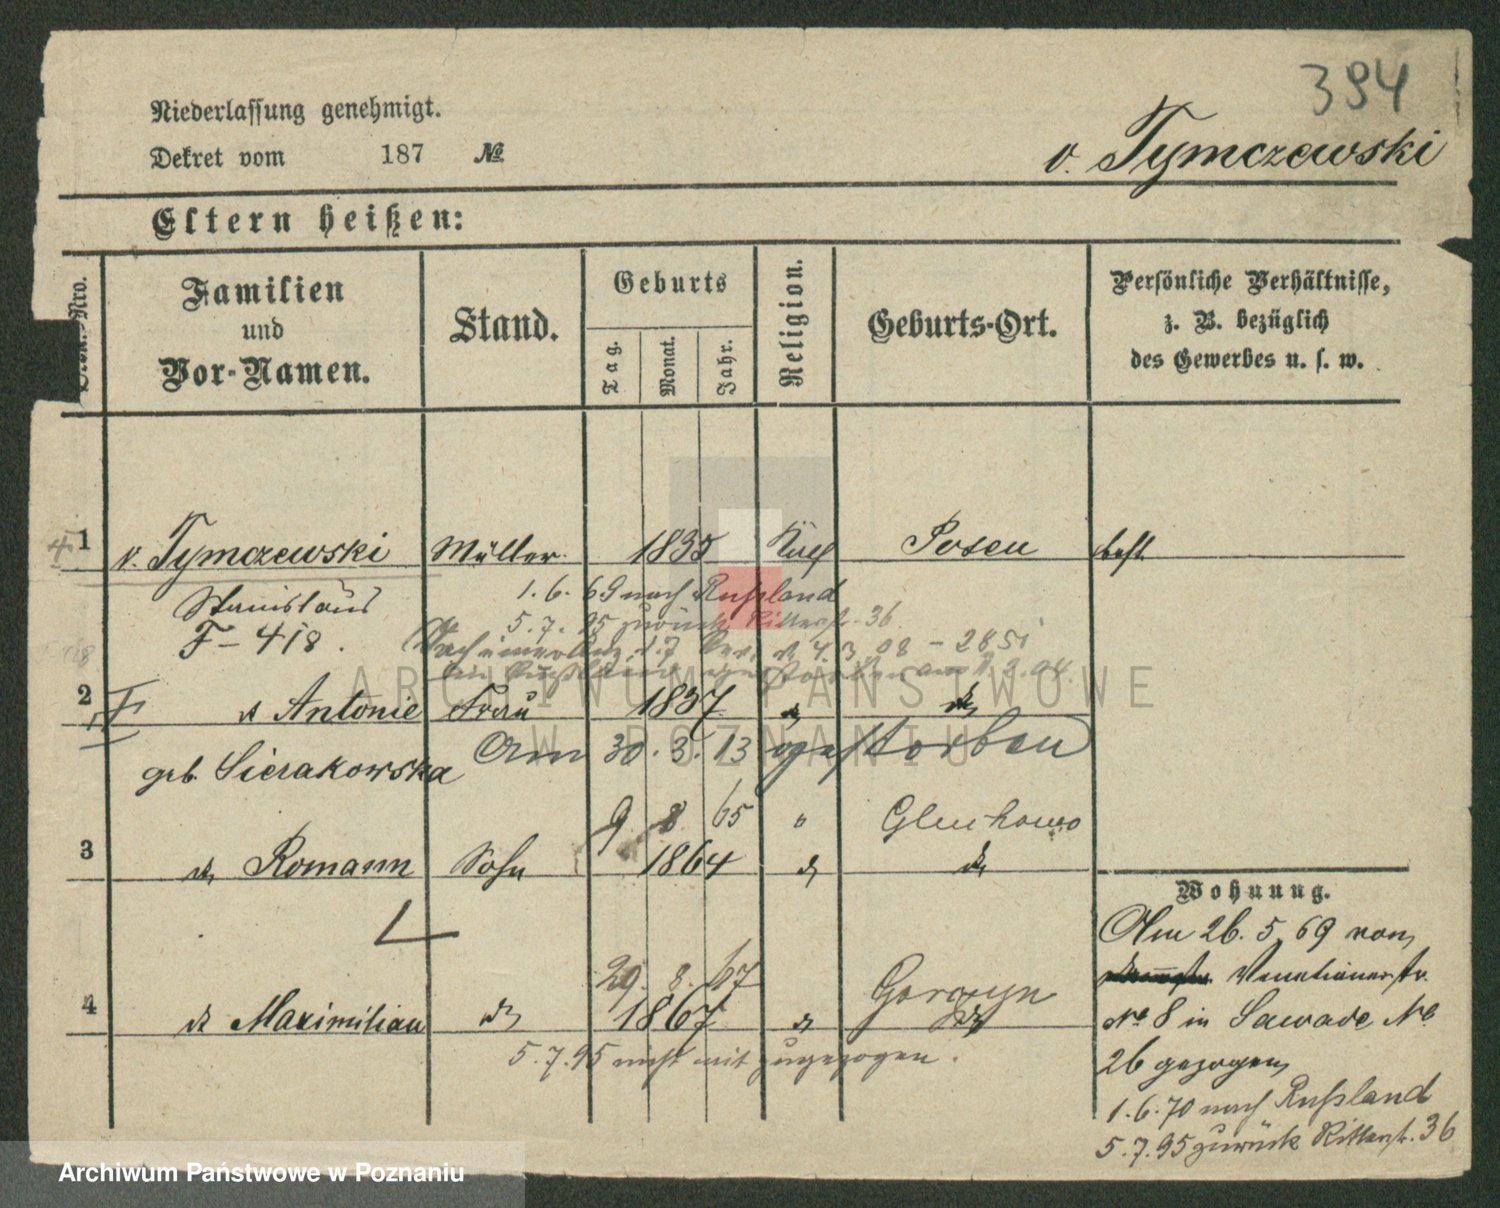 394
Niederlassung genehmigt.
Dekret vom 187 №
v. Tymczewski
Eltern heißen:
Nro.
Familien
und
Vor-Namen.
Stand.
Geburts
Tag.
Monat.
Jahr.
Religion.
Geburts-Ort.
Persönliche Verhältnisse,
z. B. bezüglich
des Gewerbes u. s. w.
1 v. Tymczewski Müller 1835 Posen
Stanislaus
1. 6. 69 nach Rußland
F-418.
5. 7. 95 zurück Ritterst. 36
4. 3. 08 - 2851
2 Antonie Frau 1837
geb. Sierakowska
Am 30. 3. 13 gestorben
9 8 65 Gluchowo
3 Romann Sohn 1864
Wohnung.
Am 26. 5. 69 von
Venetianerstr.
№ 8 in Sawade №
26 gezogen
1. 6. 70 nach Rußland
5. 7. 95 zurück Ritterst. 36
29. 8. 67 Gorczyn
4 Maximilian 1867
5. 7. 95 nicht mit zugezogen.
ARCHIWUM PAŃSTWOWE
W POZNANIU
Archiwum Państwowe w Poznaniu